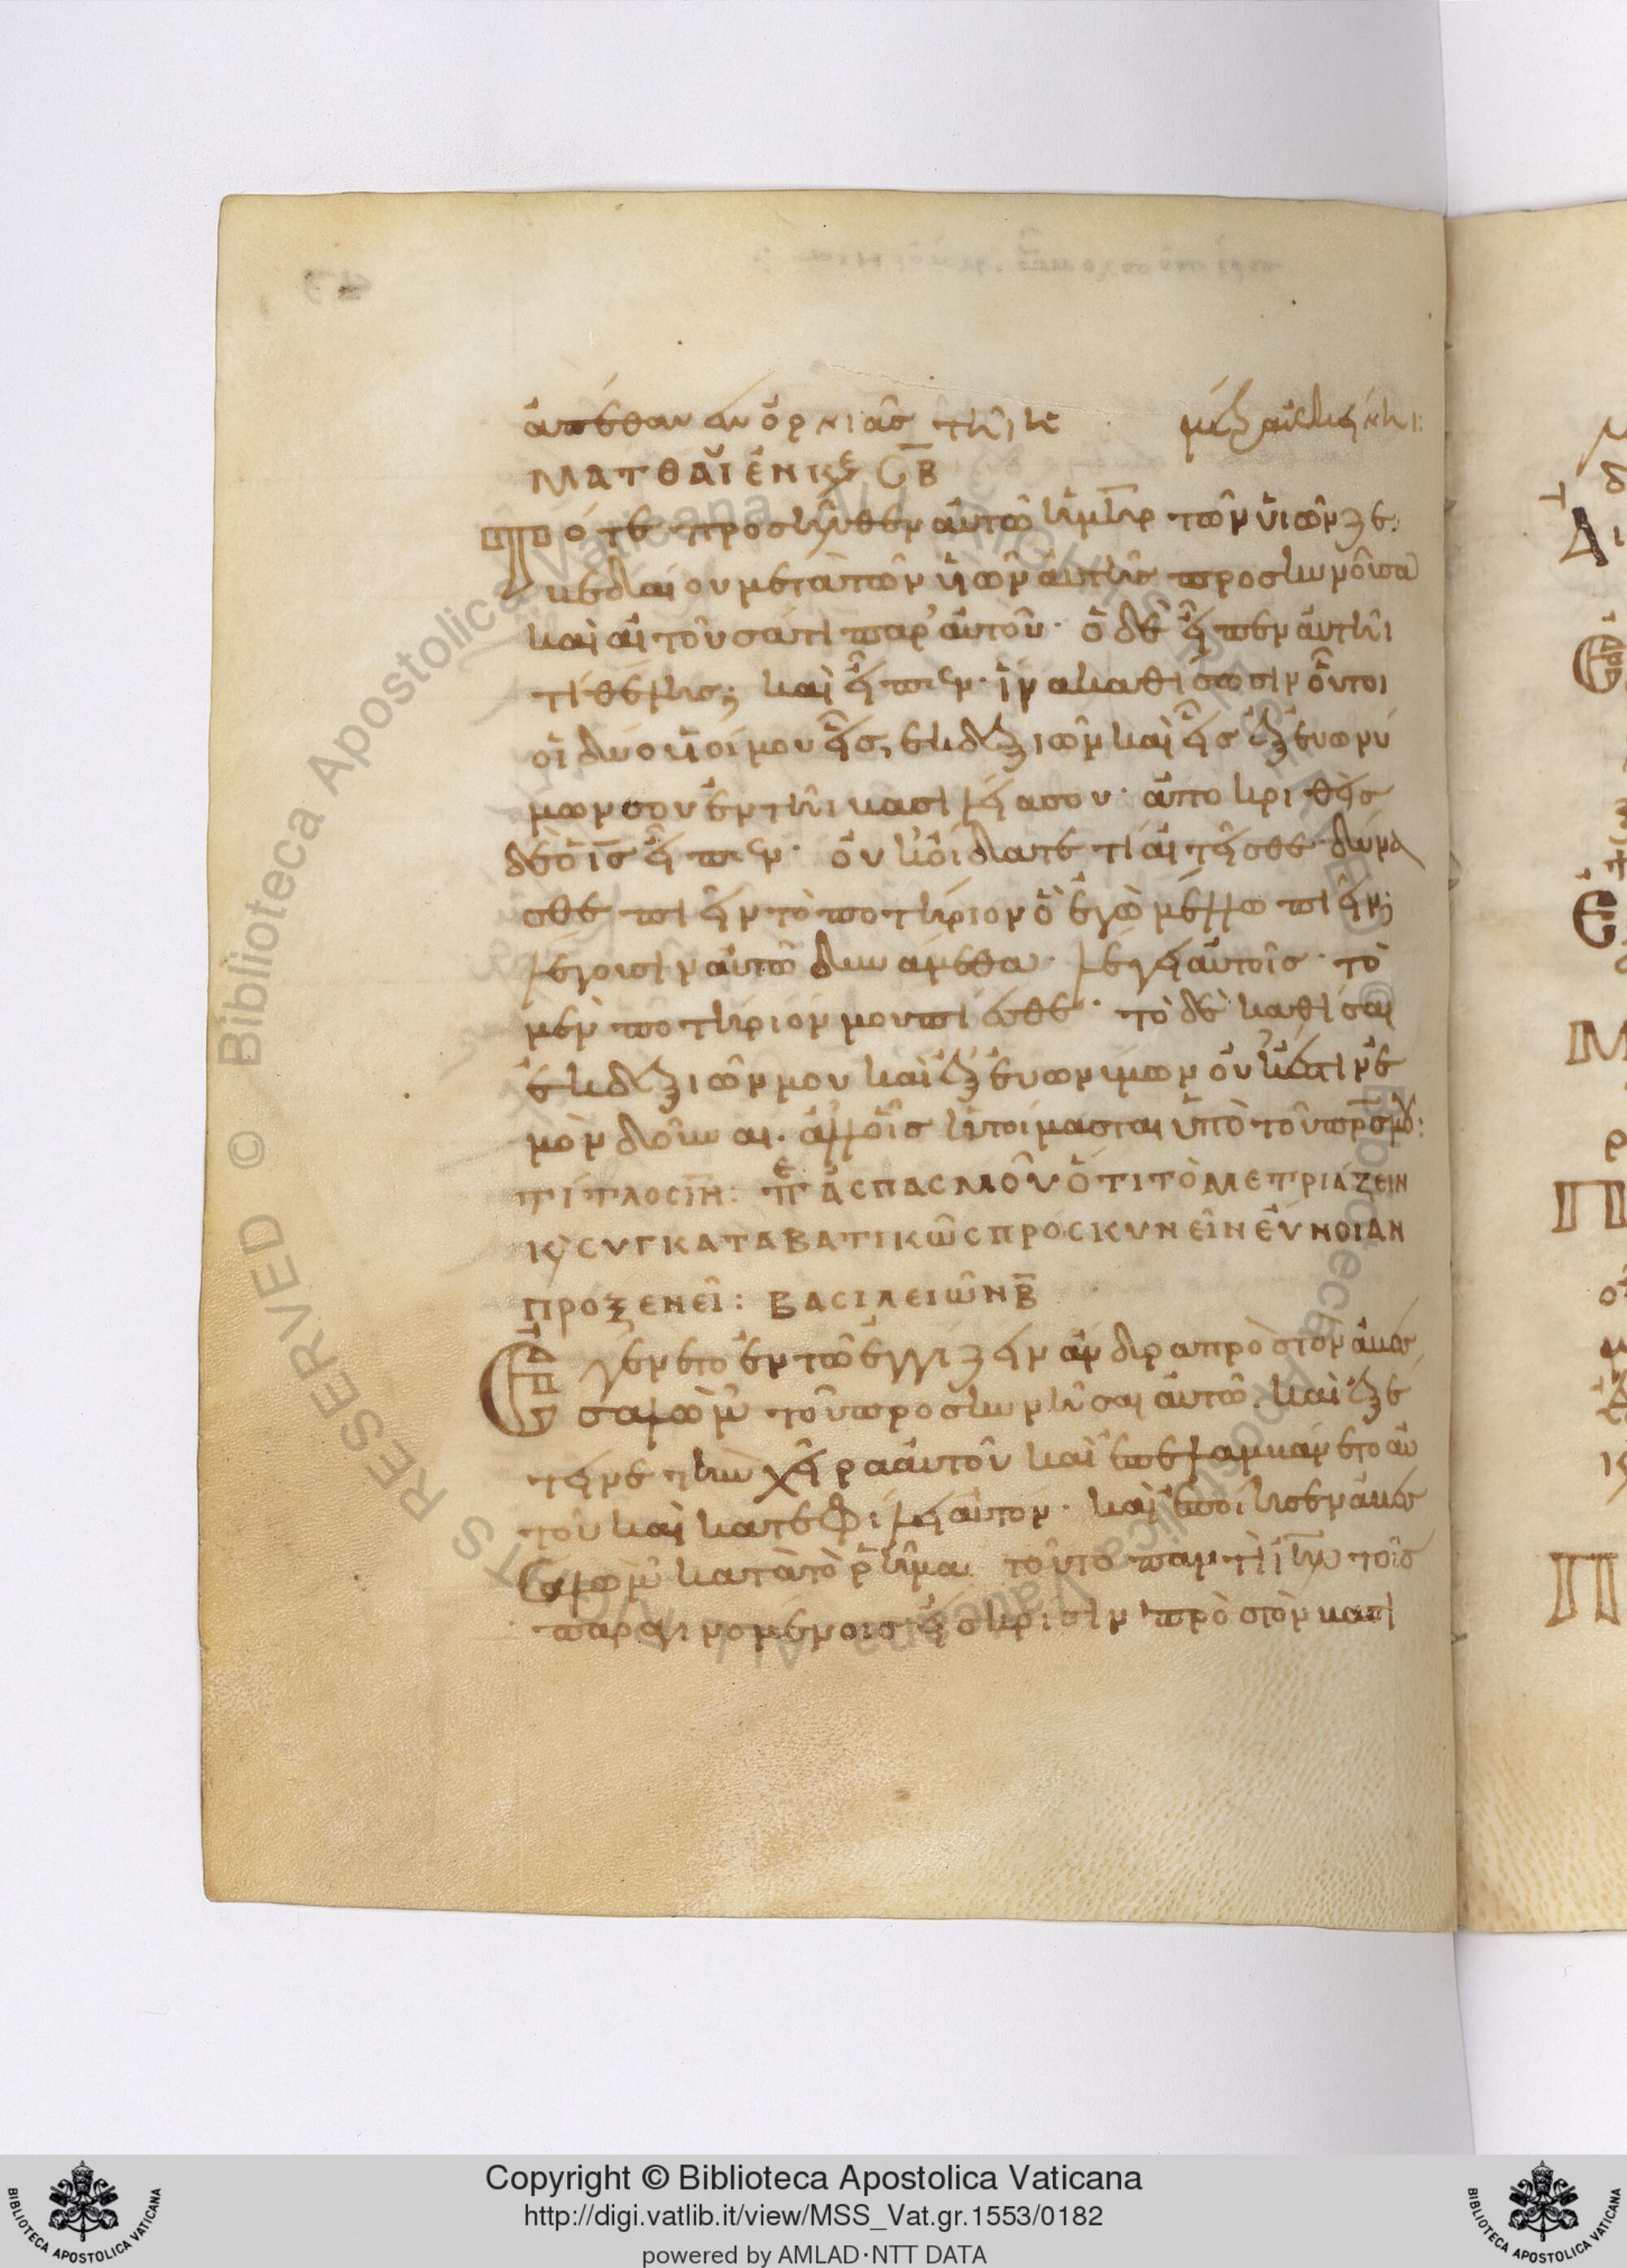 ἀπέθανεν ὀρνίας τῆι κε μεῖζ αἰκ
ΜΑΤΘΑΪ ἘΝ ΚΕ Ϛ Β
Τότε προσῆλθεν αὐτῶ ἡ μηρ τῶν υἱῶν ζε
βεδαίου μετὰ τῶν υἱῶν αὐτῆς προσκυνοῦσα
καὶ αἰτοῦσά τι παρ' αὐτοῦ· ὁ δὲ εἶπεν αὐτῆι
τί θέλεις; καὶ εἶπεν· ἵνα καθίσωσιν οὗτοι
οἱ δύο υἱοί μου εἷς ἐκ δεξιῶν καὶ εἷς ἐξ εὐωνύ
μων σου ἐν τῆι βασιλείᾳ σου· ἀποκριθεὶς
δὲ ὁ ις εἶπεν· οὐκ οἴδατε τί αἰτεῖσθε δύνα
σθε πιεῖν τὸ ποτήριον ὃ ἐγὼ μέλλω πιεῖν;
λέγουσιν αὐτῶ δυνάμεθα· λέγει αὐτοῖς· τὸ
μὲν ποτήριόν μου πίεσθε· τὸ δὲ καθίσαι
ἐκ δεξιῶν μου καὶ ἐξ εὐωνύμων οὐκ ἔστιν ἐ
μὸν δοῦναι. ἀλλ' οἷς ἡτοίμασται ὑπὸ τοῦ πρς μου:
ΤΊΤΛΟΣ ΙΗ: ΠΕ ἈΣΠΑΣΜΟΥ͂ ὍΤΙ ΤῸ ΜΕΤΡΙΆΖΕΙΝ
Κ ΣΥΓΚΑΤΑΒΑΤΙΚΩ͂Σ ΠΡΟΣΚΥΝΕΙ͂Ν ΕὔΝΟΙΑΝ
ΠΡΟΞΕΝΕΙ͂: ΒΑΣΙΛΕΙΩ͂Ν Β
Ἐγένετο ἐν τῶ ἐγγίζειν ἄνδρα πρὸς τὸν ἀβεσ
σαλὼμ τοῦ προσκυνῆσαι αὐτῶ. καὶ ἐξέ
τεινε τὴν χεῖρα αὐτοῦ καὶ ἐπελαμβάνετο αὐ
τοῦ καὶ κατεφίλει αὐτόν· καὶ ἐποίησεν ἀβεσ
σαλὼμ κατὰ τὸ ῥῆμα τοῦτο παντὶ ιηλ τοῖς
παραγινομένοις εἰς κρίσιν πρὸς τὸν βασι
Copyright © Biblioteca Apostolica Vaticana
http://digi.vatlib.it/view/MSS_Vat.gr.1553/0182
powered by AMLAD·NTT DATA